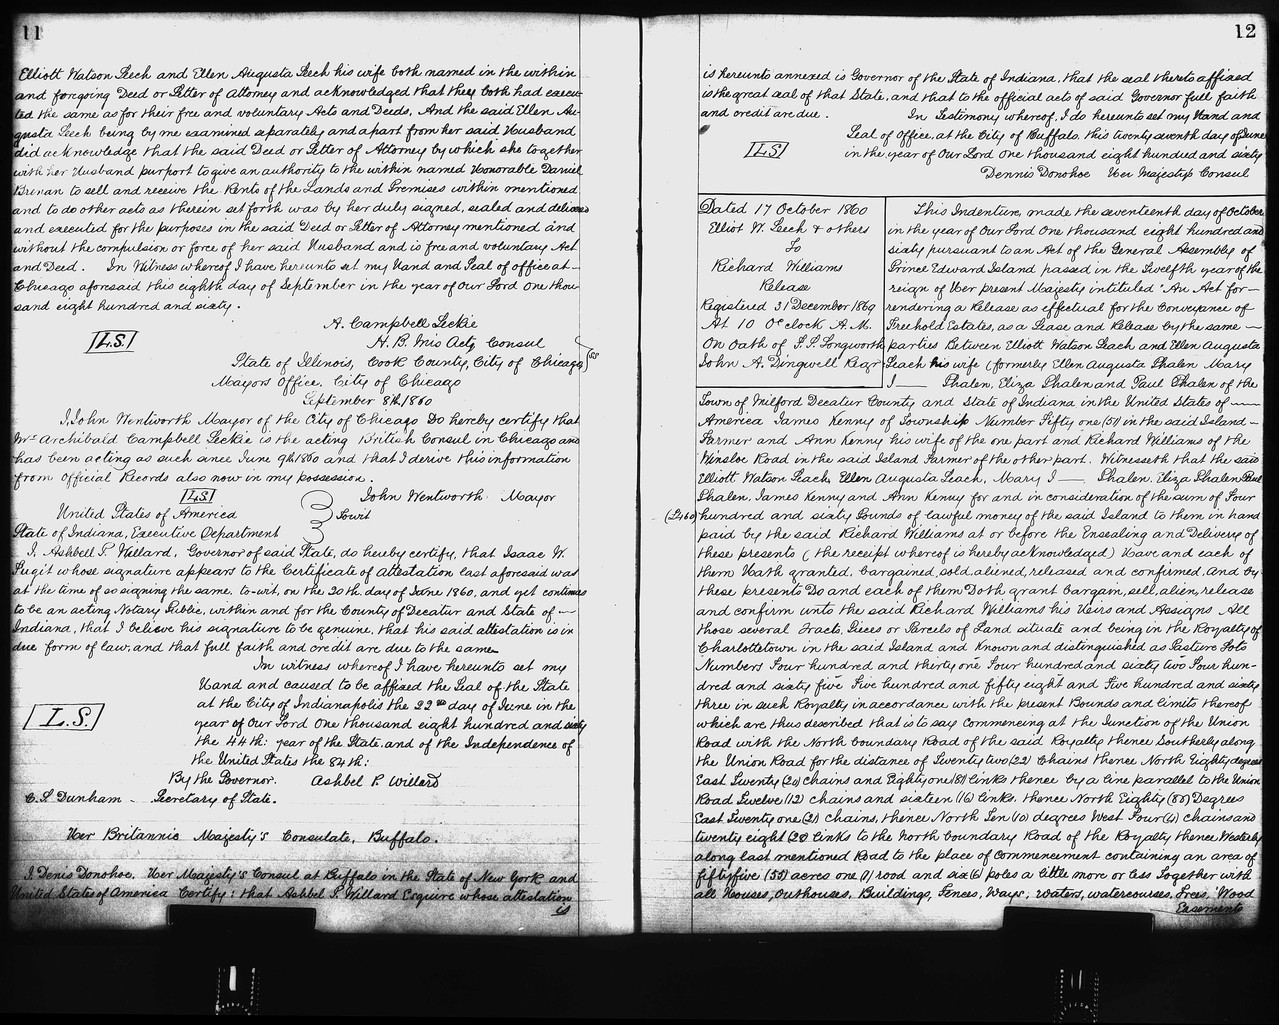 11
Elliott Watson Leech and Ellen Augusta Leech his wife both named in the within
and foregoing Deed or Letter of Attorney and acknowledged that they both had execu-
ted the same as for their free and voluntary Acts and Deeds, And the said Ellen Au-
gusta Leech being by me examined separately and apart from her said Husband
did acknowledge that the said Deed or Letter of Attorney by which she together
with her Husband purport to give an authority to the within named Honorable Daniel
Brenan to sell and receive the Rents of the Lands and Premises within mentioned
and to do other acts as therein set forth was by her duly signed, sealed and delivered
and executed for the purposes in the said Deed or Letter of Attorney mentioned and
without the compulsion or force of her said Husband and is free and voluntary Act
and Deed. In Witness whereof I have hereunto set my Hand and Seal of office at
Chicago aforesaid this eighth day of September in the year of our Lord One thou-
sand eight hundred and sixty.
A. Campbell Leckie
L.S.
H. B. Mis Actg Consul
State of Illinois, Cook County, City of Chicago } SS
Mayors Office, City of Chicago
September 8th 1860
I, John Wentworth Mayor of the City of Chicago Do hereby certify that
Mr Archibald Campbell Leckie is the acting British Consul in Chicago and
has been acting as such since June 9th 1860 and that I derive this information
from Official Records also now in my possession.
L.S. John Wentworth Mayor
United States of America } Towit
State of Indiana, Executive Department
I, Ashbell P. Willard, Governor of said State, do hereby certify, that Isaac W.
Fugit whose signature appears to the Certificate of Attestation last aforesaid was
at the time of so signing the same, to-wit, on the 20th day of June 1860, and yet continues
to be an acting Notary Public, within and for the County of Decatur and State of —
Indiana, that I believe his signature to be genuine, that his said attestation is in
due form of law, and that full faith and credit are due to the same.
In witness whereof I have hereunto set my
Hand and caused to be affixed the Seal of the State
at the City of Indianapolis the 22nd day of June in the
L.S.
year of Our Lord One thousand eight hundred and sixty
the 44th: year of the State, and of the Independence of
the United States the 84th:
By the Governor. Ashbel P. Willard
C. L. Dunham – Secretary of State.
Her Britannic Majesty's Consulate, Buffalo.
I, Denis Donohoe, Her Majesty's Consul at Buffalo in the State of New York and
United States of America Certify; that Ashbel P. Willard Esquire whose attestation
is
12
is hereunto annexed is Governor of the State of Indiana, that the seal thereto affixed
is the great seal of that State, and that to the official acts of said Governor full faith
and credit are due. In Testimony whereof, I do hereunto set my Hand and
Seal of Office, at the City of Buffalo, this twenty seventh day of June
L.S.
in the year of Our Lord One thousand eight hundred and sixty
Dennis Donohoe Her Majestys Consul
Dated 17 October 1860
Elliot W. Leech & others
To
Richard Williams
Release
Registered 31 December 1869
At 10 O'clock A.M.
On Oath of F. S. Longworth
John A. Dingwell Regr
This Indenture, made the seventeenth day of October
in the year of Our Lord One thousand eight hundred and
sixty pursuant to an Act of the General Assembly of
Prince Edward Island passed in the Twelfth year of the
reign of Her present Majesty intituled "An Act for —
rendering a Release as effectual for the Conveyance of
Freehold Estates, as a Lease and Release by the same —
parties Between Elliott Watson Leach and Ellen Augusta
Leach his wife (formerly Ellen Augusta Phalen Mary
I — Phalen, Eliza Phalen and Paul Phalen of the
Town of Milford Decatur County and State of Indiana in the United States of —
America James Kenny of Township Number Fifty one (51) in the said Island —
Farmer and Ann Kenny his wife of the one part and Richard Williams of the
Winsloe Road in the said Island Farmer of the other part. Witnesseth that the said
Elliott Watson Leach, Ellen Augusta Leach, Mary I — Phalen, Eliza Phalen Paul
Phalen, James Kenny and Ann Kenny for and in consideration of the sum of Four
(£460) hundred and sixty Pounds of lawful money of the said Island to them in hand
paid by the said Richard Williams at or before the Ensealing and Delivery of
these presents (the receipt whereof is hereby acknowledged) Have and each of
them Hath granted, bargained, sold, aliened, released and confirmed. And by
these presents Do and each of them Doth grant bargain, sell, alien, release
and confirm unto the said Richard Williams his Heirs and Assigns All
those several Tracts, Pieces or Parcels of Land situate and being in the Royalty of
Charlottetown in the said Island and known and distinguished as Pasture Lots
Numbers Four hundred and thirty one Four hundred and sixty two Four hun-
dred and sixty five Five hundred and fifty eight and Five hundred and sixty
three in such Royalty in accordance with the present Bounds and limits thereof
which are thus described that is to say Commencing at the Junction of the Union
Road with the North boundary Road of the said Royalty thence Southerly along
the Union Road for the distance of Twenty two (22) Chains thence North Eighty degrees
East Twenty (20) chains and Eighty one (81) links thence by a line parallel to the Union
Road Twelve (12) chains and sixteen (16) links, thence North Eighty (80) Degrees
East Twenty one (21) chains, thence North Ten (10) degrees West Four (4) chains and
twenty eight (28) links to the North boundary Road of the Royalty thence Westerly
along last mentioned Road to the place of Commencement containing an area of
fiftyfive (55) acres one (1) rood and six (6) poles a little more or less Together with
all Houses, Outhouses, Buildings, Fences, Ways, Waters, watercourses, Trees, Wood
Easements